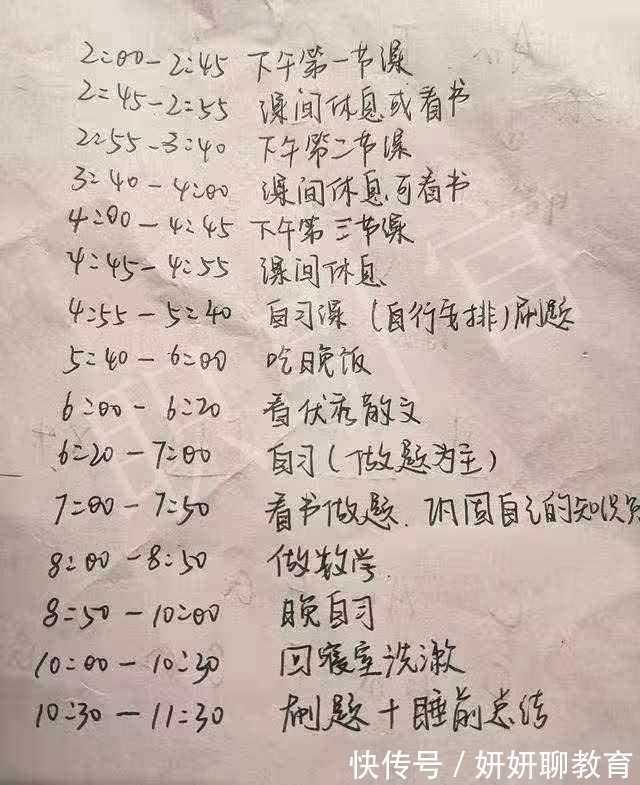 2:00-2:45 下午第一节课
2:45-2:55 课间休息或看书
2:55-3:40 下午第二节课
3:40-4:00 课间休息可看书
4:00-4:45 下午第三节课
4:45-4:55 课间休息
4:55-5:40 自习课(自行安排)刷题
5:40-6:00 吃晚饭
6:00-6:20 看优秀散文
6:20-7:00 自习(做题为主)
7:00-7:50 看书做题.巩固自己的知识
8:00-8:50 做数学
8:50-10:00 晚自习
10:00-10:30 回寝室洗漱
10:30-11:30 刷题+睡前总结
快传号/妍妍聊教育